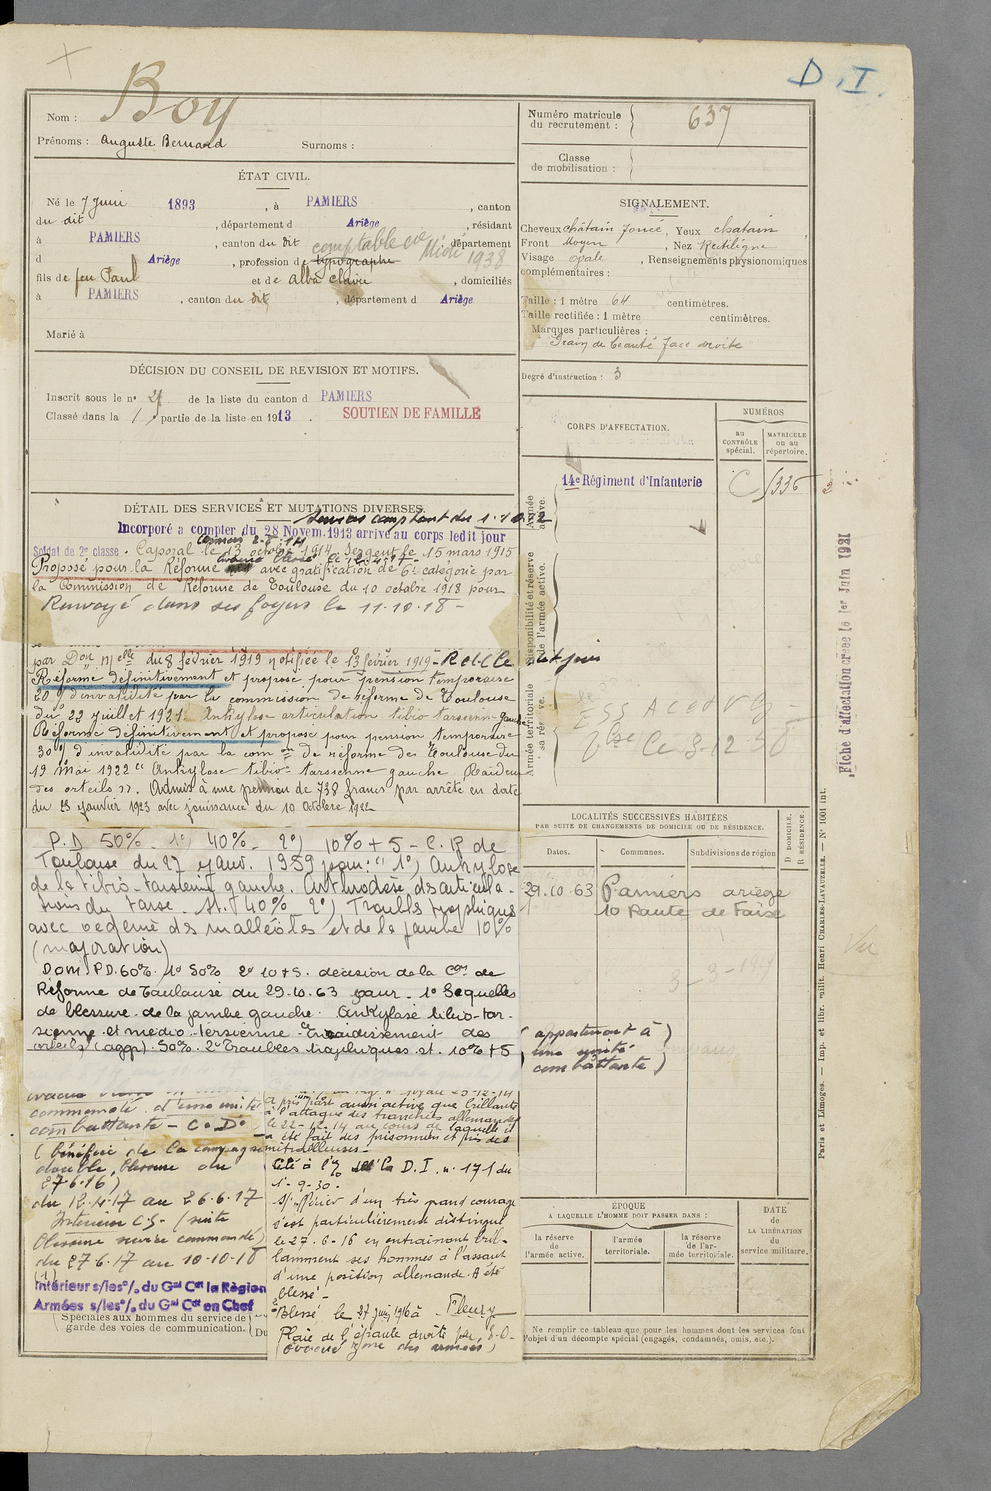 D. I.
Nom : Boy
Prénoms : Auguste Bernard Surnoms :
ÉTAT CIVIL.
Né le 7 Juin 1893, à PAMIERS, canton
du dit, département d Ariège, résidant
à PAMIERS, canton du dit, département
d Ariège, profession de typographe comptable Cie Midi 1938
fils de feu Paul et de Alba Claire, domiciliés
à PAMIERS, canton du dit, département d Ariège
Marié à
DÉCISION DU CONSEIL DE REVISION ET MOTIFS.
Inscrit sous le n° de la liste du canton d PAMIERS
Classé dans la 1 partie de la liste en 1913. SOUTIEN DE FAMILLE
DÉTAIL DES SERVICES ET MUTATIONS DIVERSES.
Services comptant du 1.10.
Incorporé a compter du 28 Novem. 1913 arrivé au corps ledit jour
Soldat de 2e classe. Caporal le 13 octobre 1914. Sergent le 15 mars 1915
Proposé pour la Réforme avec gratification de 6e catégorie par
la Commission de Réforme de Toulouse du 10 octobre 1918 pour
Renvoyé dans ses foyers le 11.10.18 -
par Don Melle du 8 février 1919 notifiée le 13 février 1919 - R et C le dit jour
Réformé définitivement et proposé pour pension temporaire
20% d'invalidité par la commission de réforme de Toulouse
du 29 juillet 1921. Ankylose articulation tibio tarsienne gauche
Réformé définitivement et proposé pour pension temporaire
30% d'invalidité par la com on de réforme de Toulouse du
19 Mai 1922 "Ankylose tibio-tarsienne gauche. Raideur
des orteils". Admis à une pension de 738 francs par arrêté en date
du 23 janvier 1923 avec jouissance du 10 Octobre 1922
P.D 50% 1°) 40% - 2°) 10% + 5 - C.R de
Toulouse du 27 janv. 1939 pour : "1°) Ankylose
de la tibio-tarsienne gauche. Arthrodèse des articula-
tions du tarse. st. 40% 2°) Troubles trophiques
avec oedème des malléoles et de la jambe 10%
(majoration)
Dom. P.D. 60%. 1° 50% 2° 10+5. décision de la Con de
Réforme de Toulouse du 29.10.63 pour. 1° Séquelles
de blessure de la jambe gauche. ankylose tibio-tar-
sienne et médio-tarsienne. Enraidissement des
orteils (agg). 50%. 2° Troubles trophiques st. 10% + 5
commandé d'une unité
combattante - C° D°
(bénéfice de la campagne
double, blessure du
27-6-16)
du 12.4.17 au 26.6.17
Intérieur C.S. (suite
blessure suivie commandé)
du 27.6.17 au 10-10-18
Intérieur s/les o/. du Gal Cdt la Région
Armées s/les o/. du Gal Cdt en Chef
Spéciales aux hommes du service de
garde des voies de communication.
Du
A pris part aussi active que brillante
à l'attaque des tranchées allemandes
le 22-12-14 au cours de laquelle il
a été fait des prisonniers et pris des
mitrailleuses -
Cité à l'o la D.I. n° 171 du
1-9-30-
S/officier d'un très grand courage
s'est particulièrement distingué
le 27-6-16 en entrainant bril-
lamment ses hommes à l'assaut
d'une position allemande. A été
blessé -
Blessé le 27 juin 1916 à Fleury
Plaie de l'épaule droite par E.O-
(évacué zone des armées)
Numéro matricule du recrutement : 637
Classe de mobilisation :
SIGNALEMENT.
Cheveux châtain foncé, Yeux chatain,
Front Moyen, Nez Rectiligne
Visage ovale, Renseignements physionomiques
complémentaires :
Taille : 1 mètre 64 centimètres.
Taille rectifiée : 1 mètre centimètres.
Marques particulières :
Grain de beauté face droite
Degré d'instruction : 3
CORPS D'AFFECTATION.
NUMÉROS
au CONTRÔLE spécial.
MATRICULE ou au répertoire.
Armée active.
14e Régiment d'Infanterie
Disponibilité et réserve de l'armée active.
Armée territoriale et sa réserve.
LOCALITÉS SUCCESSIVES HABITÉES
PAR SUITE DE CHANGEMENTS DE DOMICILE OU DE RÉSIDENCE.
Dates. Communes. Subdivisions de région
D DOMICILE, R RÉSIDENCE.
29.10.63 Pamiers ariège
10 Route de Foix
(appartenant à)
une unité
combattante)
ÉPOQUE
A LAQUELLE L'HOMME DOIT PASSER DANS :
la réserve de l'armée active.
l'armée territoriale.
la réserve de l'armée territoriale.
DATE de LA LIBÉRATION du service militaire.
Ne remplir ce tableau que pour les hommes dont les services font
l'objet d'un décompte spécial (engagés, condamnés, omis, etc.).
Fiche d'affectation créée le 1er Juin 1921
Paris et Limoges. — Imp. et libr. milit. Henri CHARLES-LAVAUZELLE. — N° 1001 int.
Vu